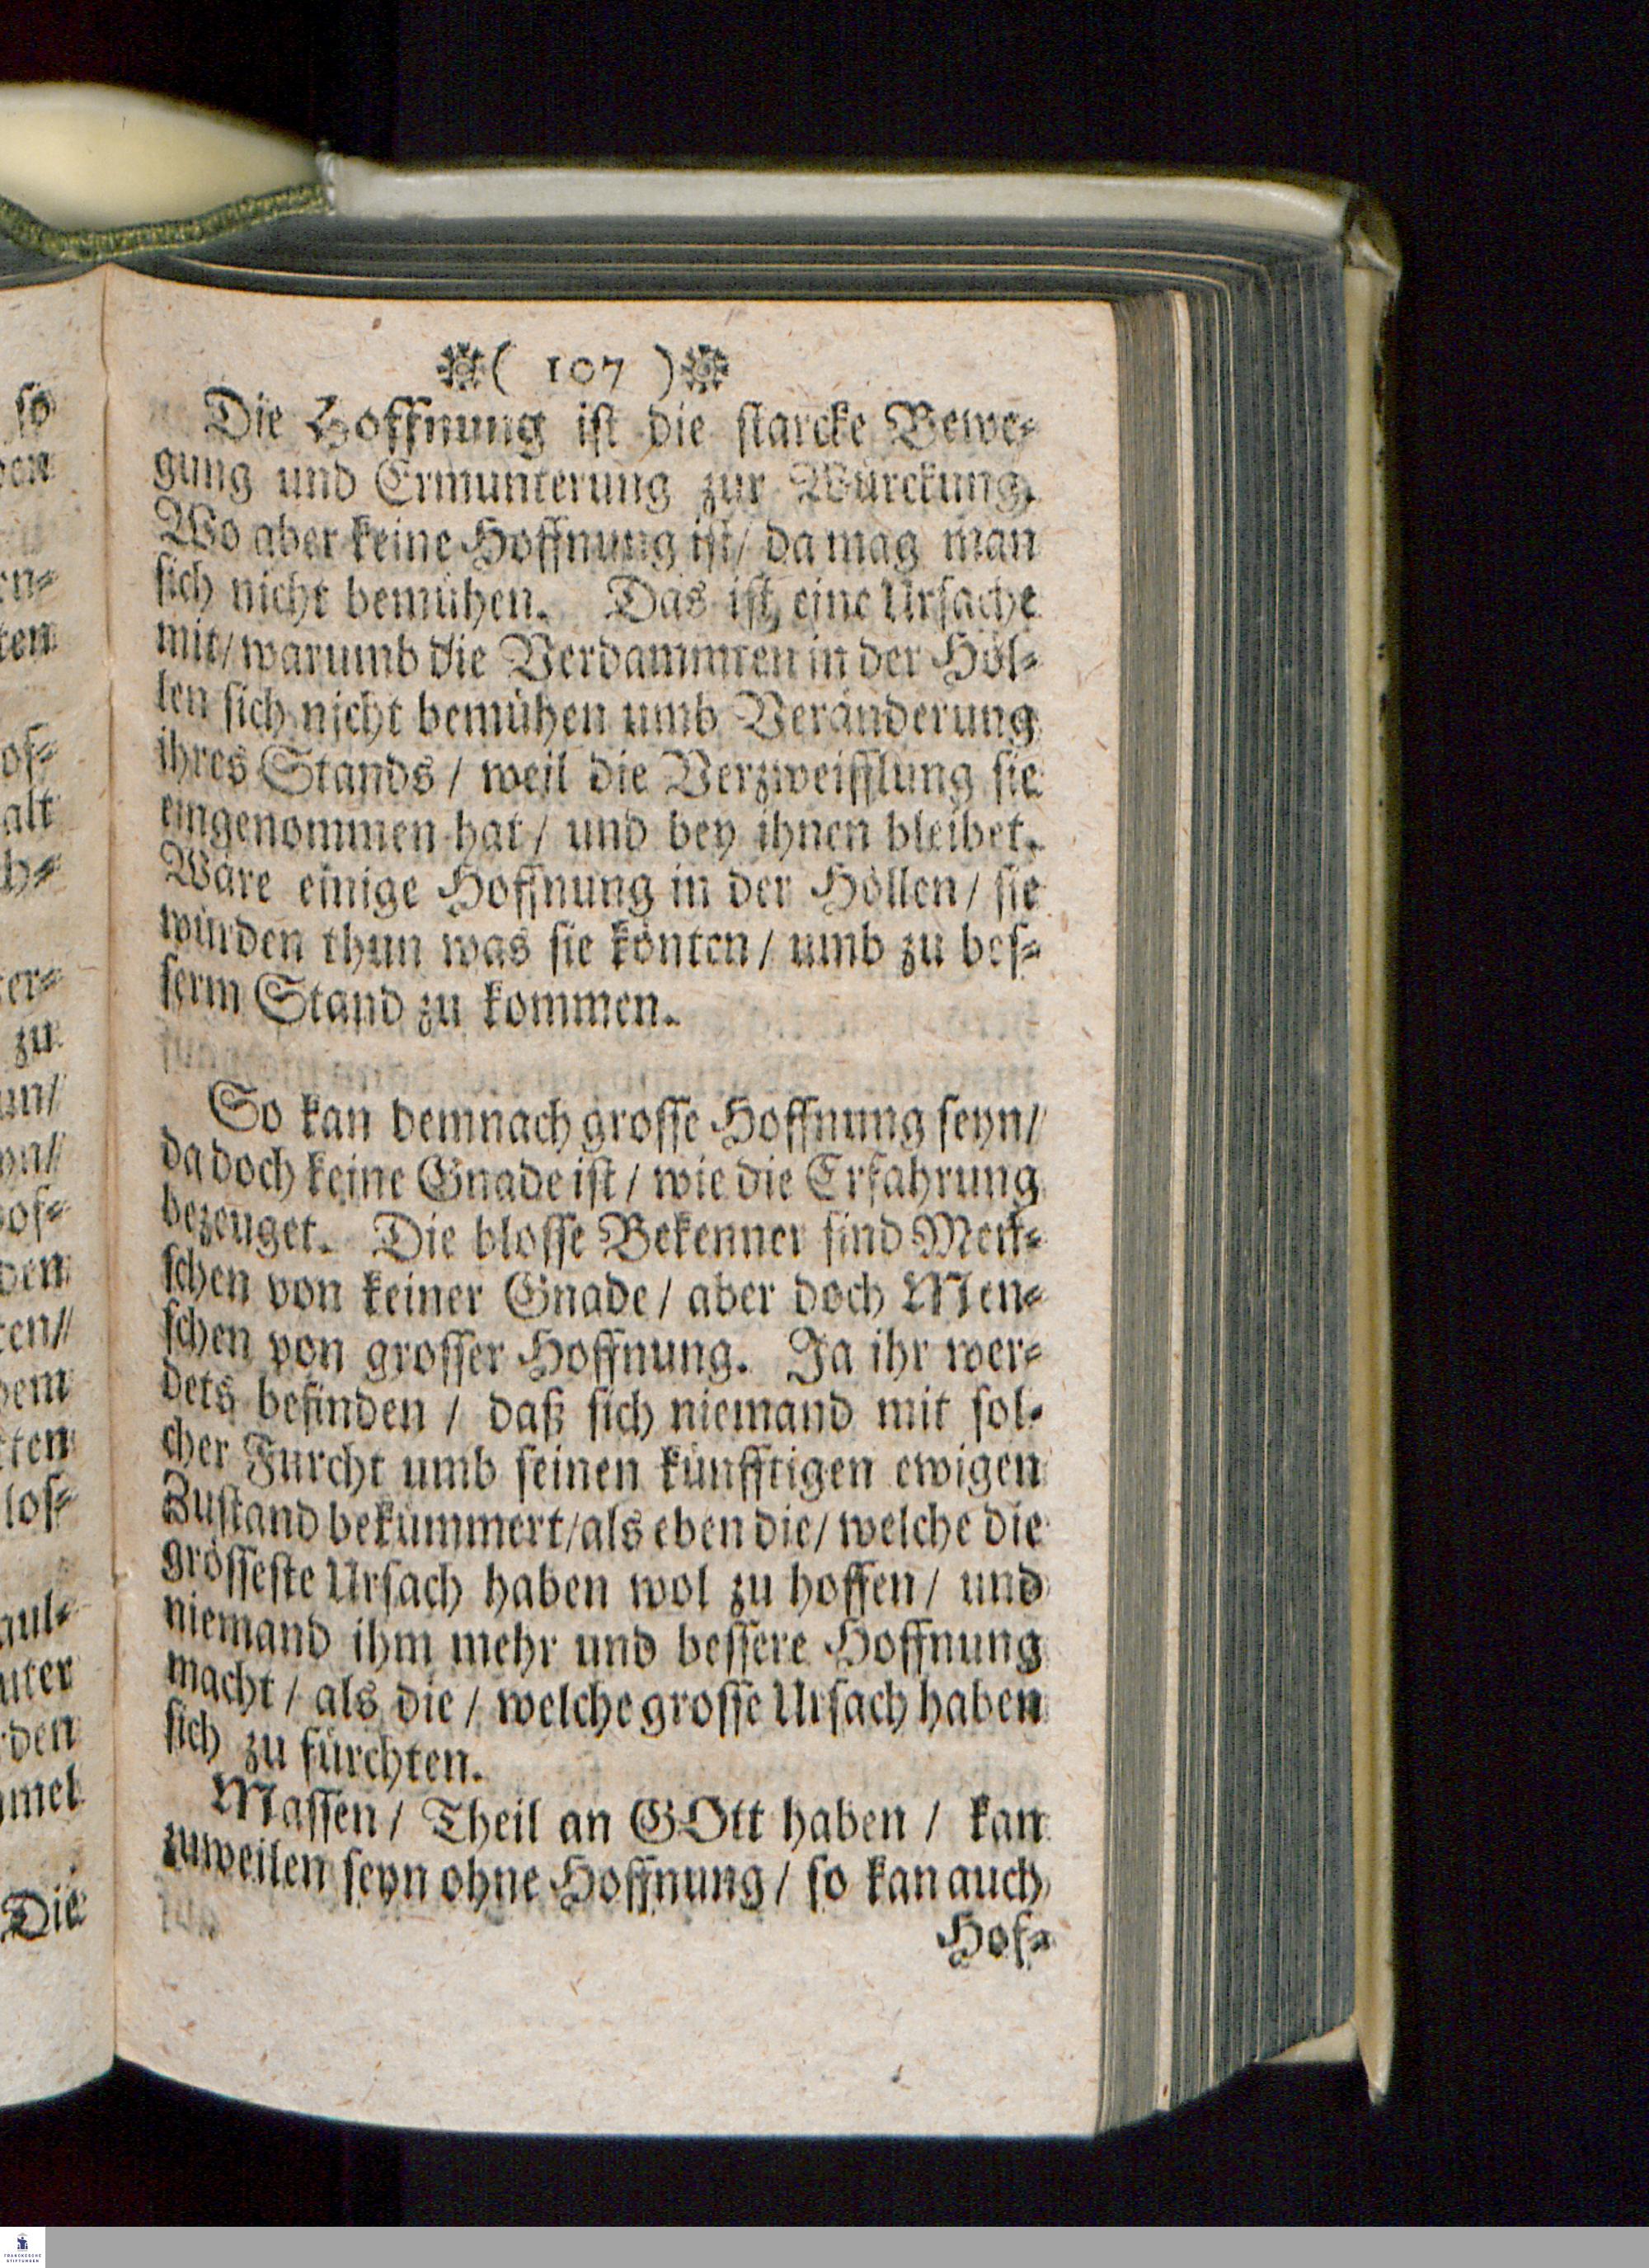 ( 107 )
Die Hoffnung ist die starcke Bewe-
gung und Ermunterung zur Würckung.
Wo aber keine Hoffnung ist/ da mag man
sich nicht bemühen. Das ist eine Ursache
mit/ warumb die Verdammten in der Höl-
len sich nicht bemühen umb Veränderung
ihres Stands / weil die Verzweifflung sie
eingenommen hat / und bey ihnen bleibet.
Wäre einige Hoffnung in der Höllen / sie
würden thun was sie könten / umb zu bes-
serm Stand zu kommen.
So kan demnach grosse Hoffnung seyn/
da doch keine Gnade ist / wie die Erfahrung
bezeuget. Die blosse Bekenner sind Men-
schen von keiner Gnade / aber doch Men-
schen von grosser Hoffnung. Ja ihr wer-
dets befinden / daß sich niemand mit sol-
cher Furcht umb seinen künfftigen ewigen
Zustand bekümmert/als eben die/ welche die
grösseste Ursach haben wol zu hoffen / und
niemand ihm mehr und bessere Hoffnung
macht / als die / welche grosse Ursach haben
sich zu fürchten.
Massen / Theil an GOtt haben / kan
zuweilen seyn ohne Hoffnung / so kan auch
Hof-
so
den
en-
ten
of-
alt
h-
er-
zu
un/
yn/
of-
den
ten/
dem
ten
los-
aul-
uter
den
mel
Die
FRANCKESCHE
STIFTUNGEN